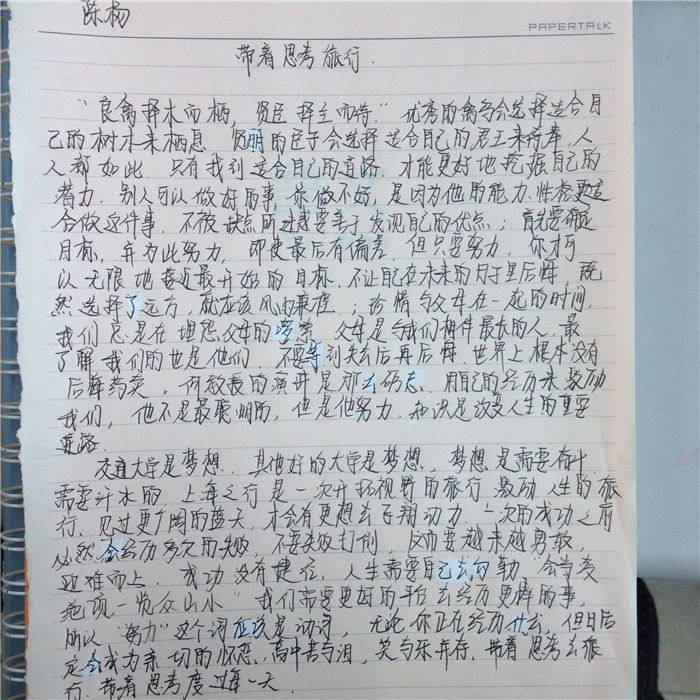 陈杨
PAPERTALK
带着思考旅行.
"良禽择木而栖，贤臣择主而侍." 优秀的禽鸟会选择适合自
己的树木来栖息 贤明的臣子会选择适合自己的君王来侍奉,人
人都如此 只有找到适合自己的道路, 才能更好地挖掘自己的
潜力. 别人可以做好的事, 你做不好, 是因为他的能力.性格更适
合做这件事, 不被缺点所 要善于发现自己的优点; 首先要确定
目标, 并为此努力, 即使最后有偏差, 但只要努力, 你才可
以无限地接近最开始的目标. 不让自己在未来的日子里后悔, 既
然选择了远方, 就应该风雨兼程; 珍惜与父母在一起的时间,
我们总是在埋怨父母的 父母是与我们相伴最长的人, 最
了解我们的也是他们 不要等到失去后再后悔. 世界上根本没有
后悔药卖. 何校长的演讲是那么 用自己的经历来激励
我们, 他不是最聪明的, 但是他努力. 知识是改变人生的重要
道路.
交通大学是梦想. 其他好的大学是梦想, 梦想是需要奋斗.
需要汗水的 上海之行是一次开拓视野的旅行, 激励人生的旅
行. 见过更广阔的蓝天, 才会有更想去飞翔动力 一次的成功之前
必然会经历多次的失败, 不要失败打倒, 反而要越来越勇敢,
迎难而上. 成功没有捷径, 人生需要自己去勾勒 "会当凌
绝顶一览众山小" 我们需要更好的平台去经历更棒的事,
所以 "努力" 这个词应该是动词, 无论你正在经历什么, 但日后
定会成为亲切的怀恋. 高中苦与泪, 笑与乐并存. 带着思考去旅
行. 带着思考度过每一天.